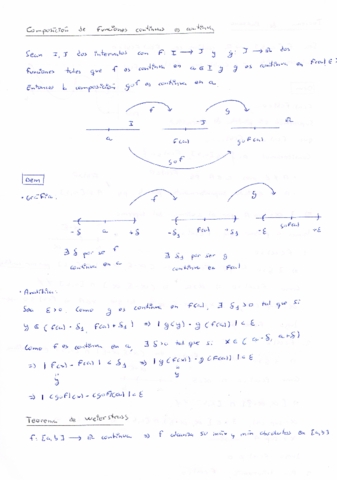 Composición de funciones continuas es continua
Sean I, J dos intervalos con f: I → J y g: J → ℝ dos
funciones tales que f es continua en a ∈ I y g es continua en f(a) ∈ J
Entonces la composición g∘f es continua en a.
f g
I J ℝ
a f(a) g∘f(a)
g∘f
Dem
· Gráfica
f g
-δ a +δ -δ₁ f(a) -δ₁ -ε g∘f(a) +ε
∃ δ por ser f ∃ δ₁ por ser g
continua en a continua en f(a)
· Analítica
Sea ε>0. Como g es continua en f(a), ∃ δ₁>0 tal que si
y ∈ (f(a) - δ₁, f(a) + δ₁) ⇒ |g(y) - g(f(a))| < ε
Como f es continua en a, ∃ δ>0 tal que si x ∈ (a-δ, a+δ)
⇒ |f(x) - f(a)| < δ₁ ⇒ |g(f(x)) - g(f(a))| < ε
y y
⇒ |(g∘f)(x) - (g∘f)(a)| < ε
Teorema de Weierstrass
f: [a,b] → ℝ continua ⇒ f alcanza su máx y mín absolutos en [a,b]